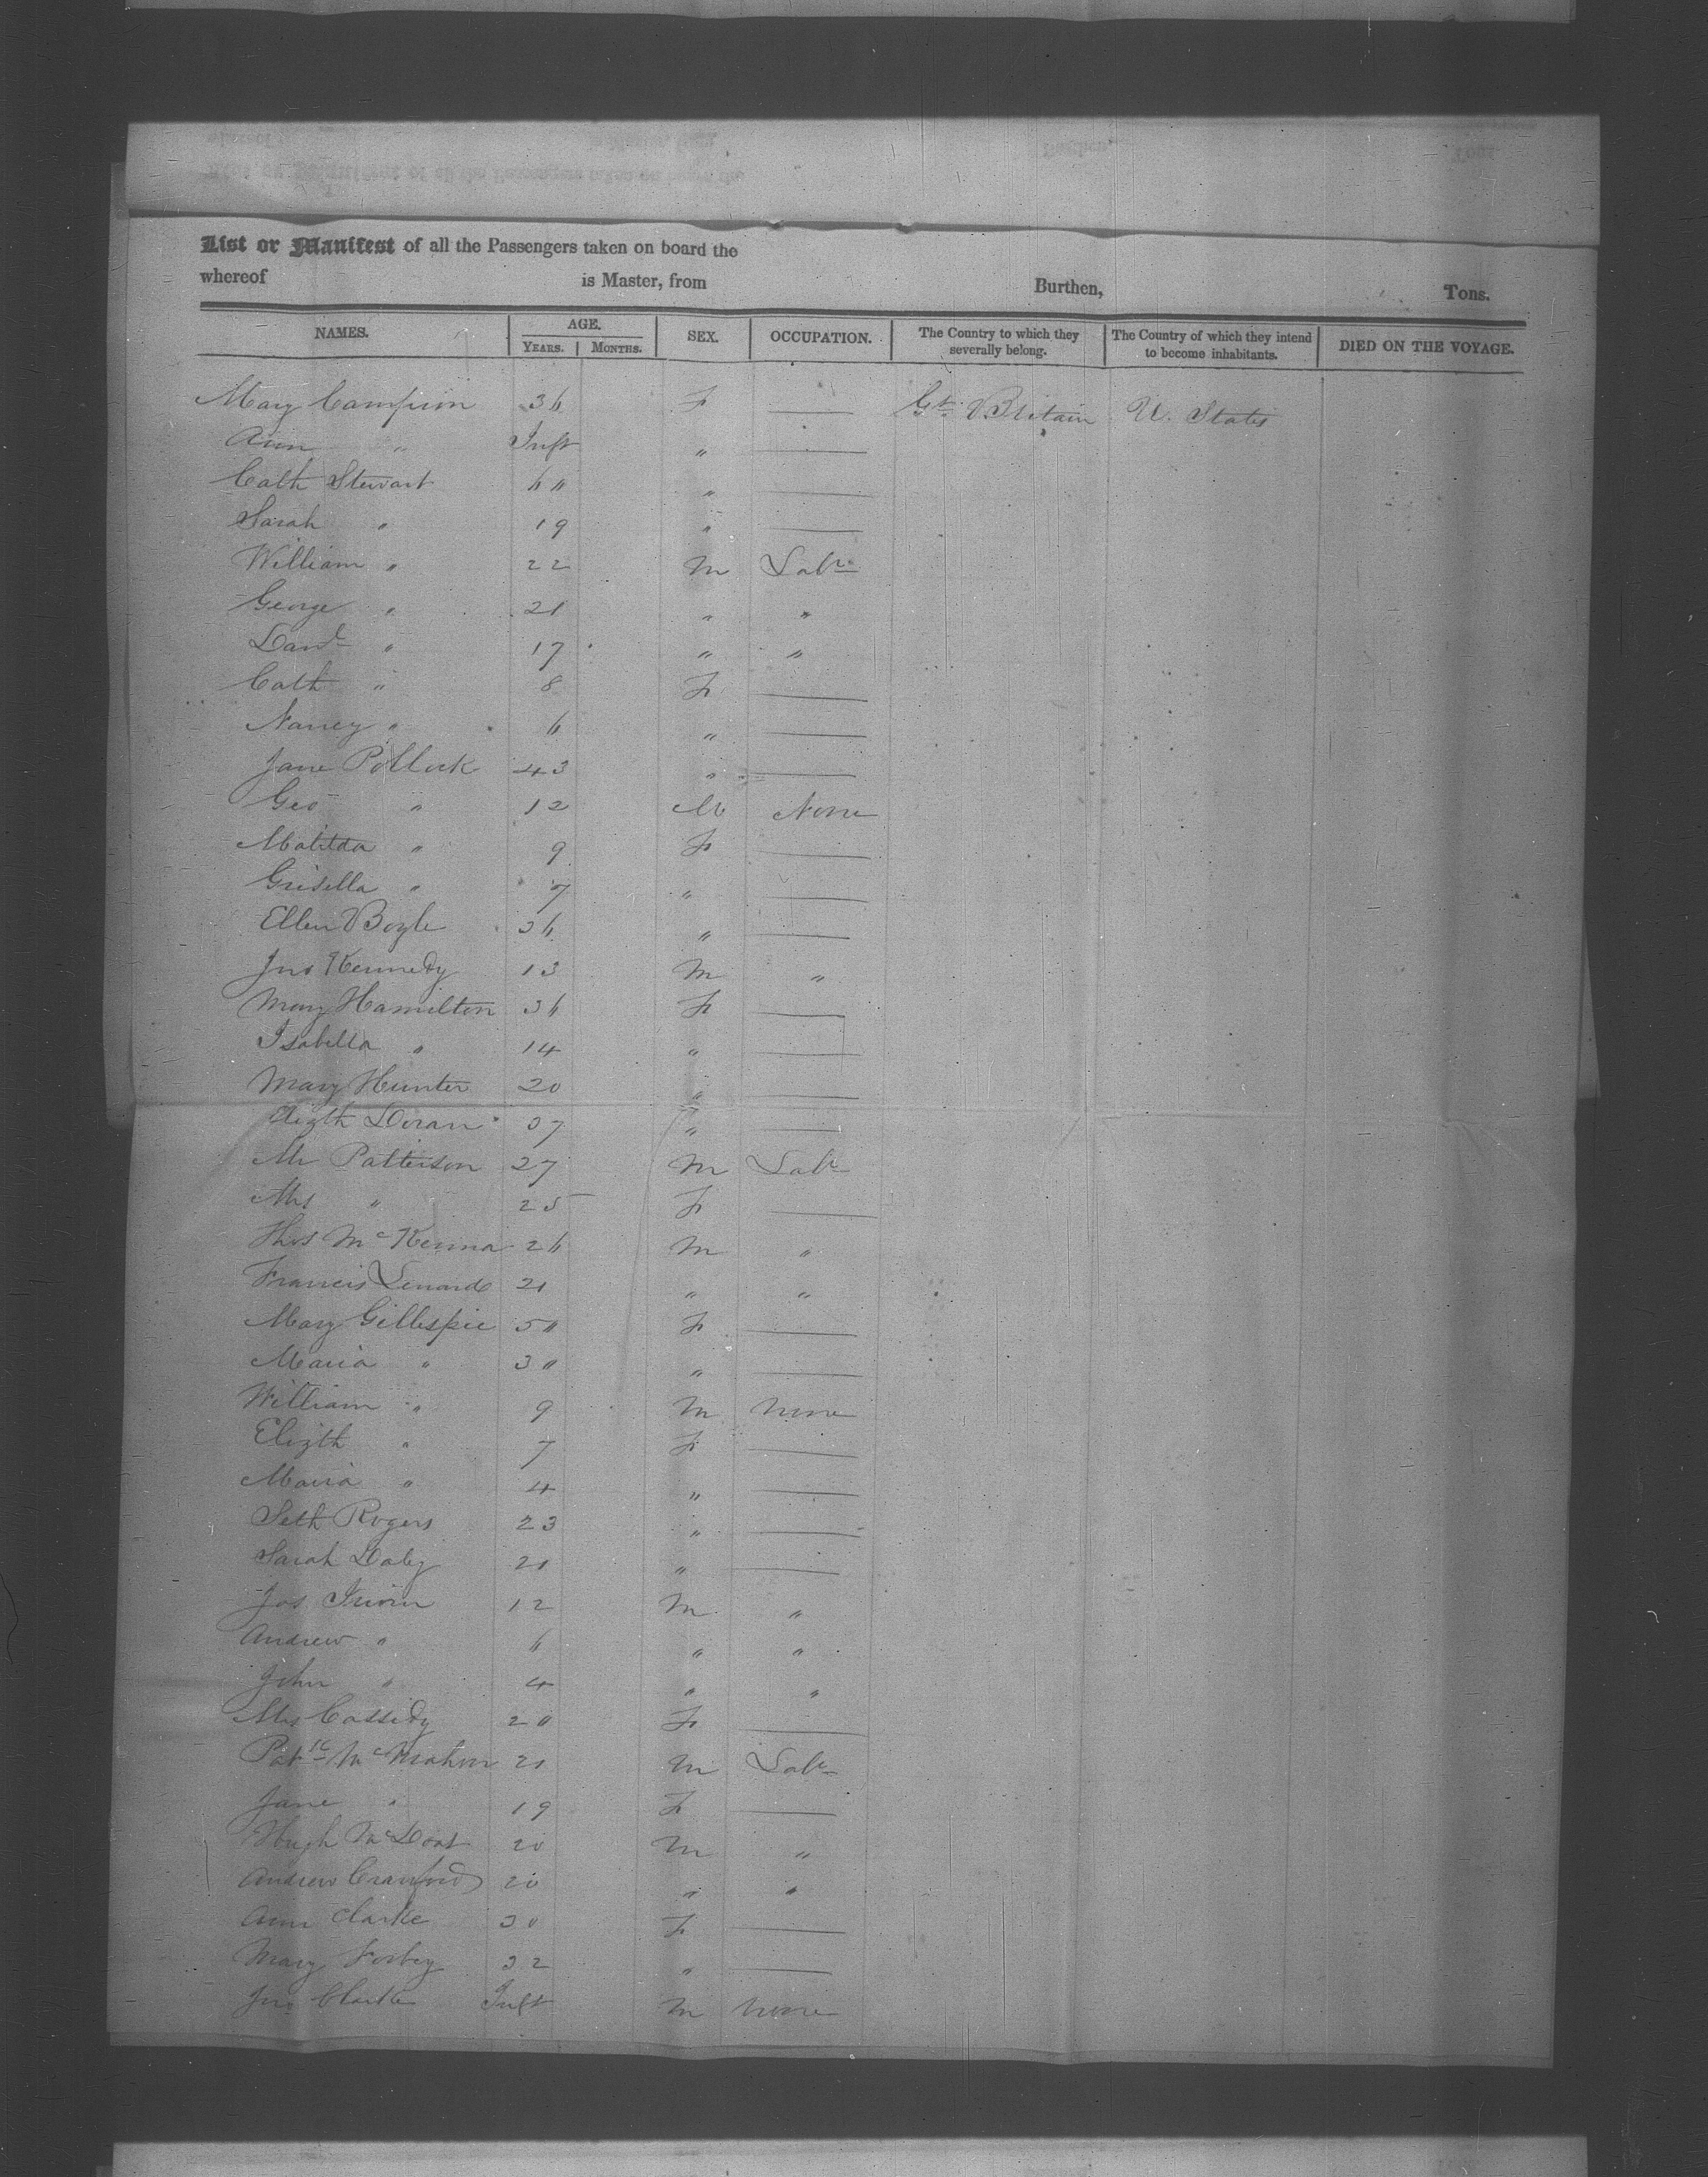 List or Manifest of all the Passengers taken on board the
whereof is Master, from Burthen, Tons.
NAMES. AGE. YEARS. MONTHS. SEX. OCCUPATION. The Country to which they severally belong. The Country of which they intend to become inhabitants. DIED ON THE VOYAGE.
Mary Campion 36 F — Gt. Britain U. States
Ann " Inft " —
Cath Stewart 60 " —
Sarah " 19 " —
William " 22 M Labr
George " 21 " "
Danl " 17 " "
Cath " 8 F —
Nancy " 6 " —
Jane Pollock 43 " —
Geo " 12 M None
Matilda " 9 F —
Grisella " 7 " —
Ellen Boyle 36 " —
Jno Kennedy 13 M "
Mary Hamilton 36 F —
Isabella " 14 " —
Mary Hunter 20 " —
Elizth Doran 37 " —
Mr Patterson 27 M Labr
Mrs " 25 F —
Thos McKenna 26 M "
Francis Lenard 21 " "
Mary Gillespie 50 F —
Maria " 30 " —
William " 9 M None
Elizth " 7 F —
Maria " 4 " —
Seth Rogers 23 " —
Sarah Daly 21 " —
Jos Irwin 12 M "
Andrew " 6 " "
John " 4 " "
Mrs Cassidy 20 F —
Patk McMahon 21 M Labr
Jane " 19 F —
Hugh 20 M "
Andrew Crawford 20 " "
Ann Clarke 30 F —
Mary 32 " —
Jno Clarke Inft M None